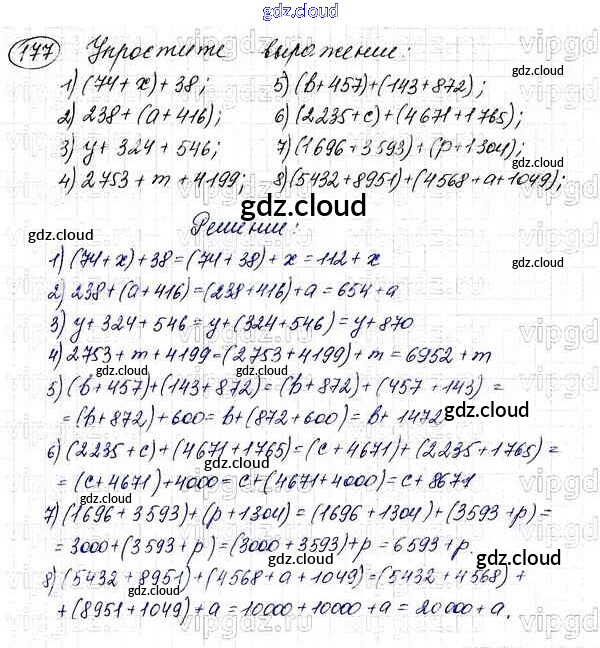 gdz.cloud
177 Упростите выражение:
1) (74+x)+38; 5) (b+457)+(143+872);
2) 238+(a+416); 6) (2235+c)+(4671+1765);
3) y+324+546; 7) (1696+3593)+(p+1304);
4) 2753+m+4199; 8) (5432+8951)+(4568+a+1049);
gdz.cloud
Решение:
1) (74+x)+38=(74+38)+x=112+x
2) 238+(a+416)=(238+416)+a=654+a
3) y+324+546=y+(324+546)=y+870
4) 2753+m+4199=(2753+4199)+m=6952+m
5) (b+457)+(143+872)=(b+872)+(457+143)=
=(b+872)+600=b+(872+600)=b+1472
6) (2235+c)+(4671+1765)=(c+4671)+(2235+1765)=
=(c+4671)+4000=c+(4671+4000)=c+8671
7) (1696+3593)+(p+1304)=(1696+1304)+(3593+p)=
=3000+(3593+p)=(3000+3593)+p=6593+p.
8) (5432+8951)+(4568+a+1049)=(5432+4568)+
+(8951+1049)+a=10000+10000+a=20000+a.